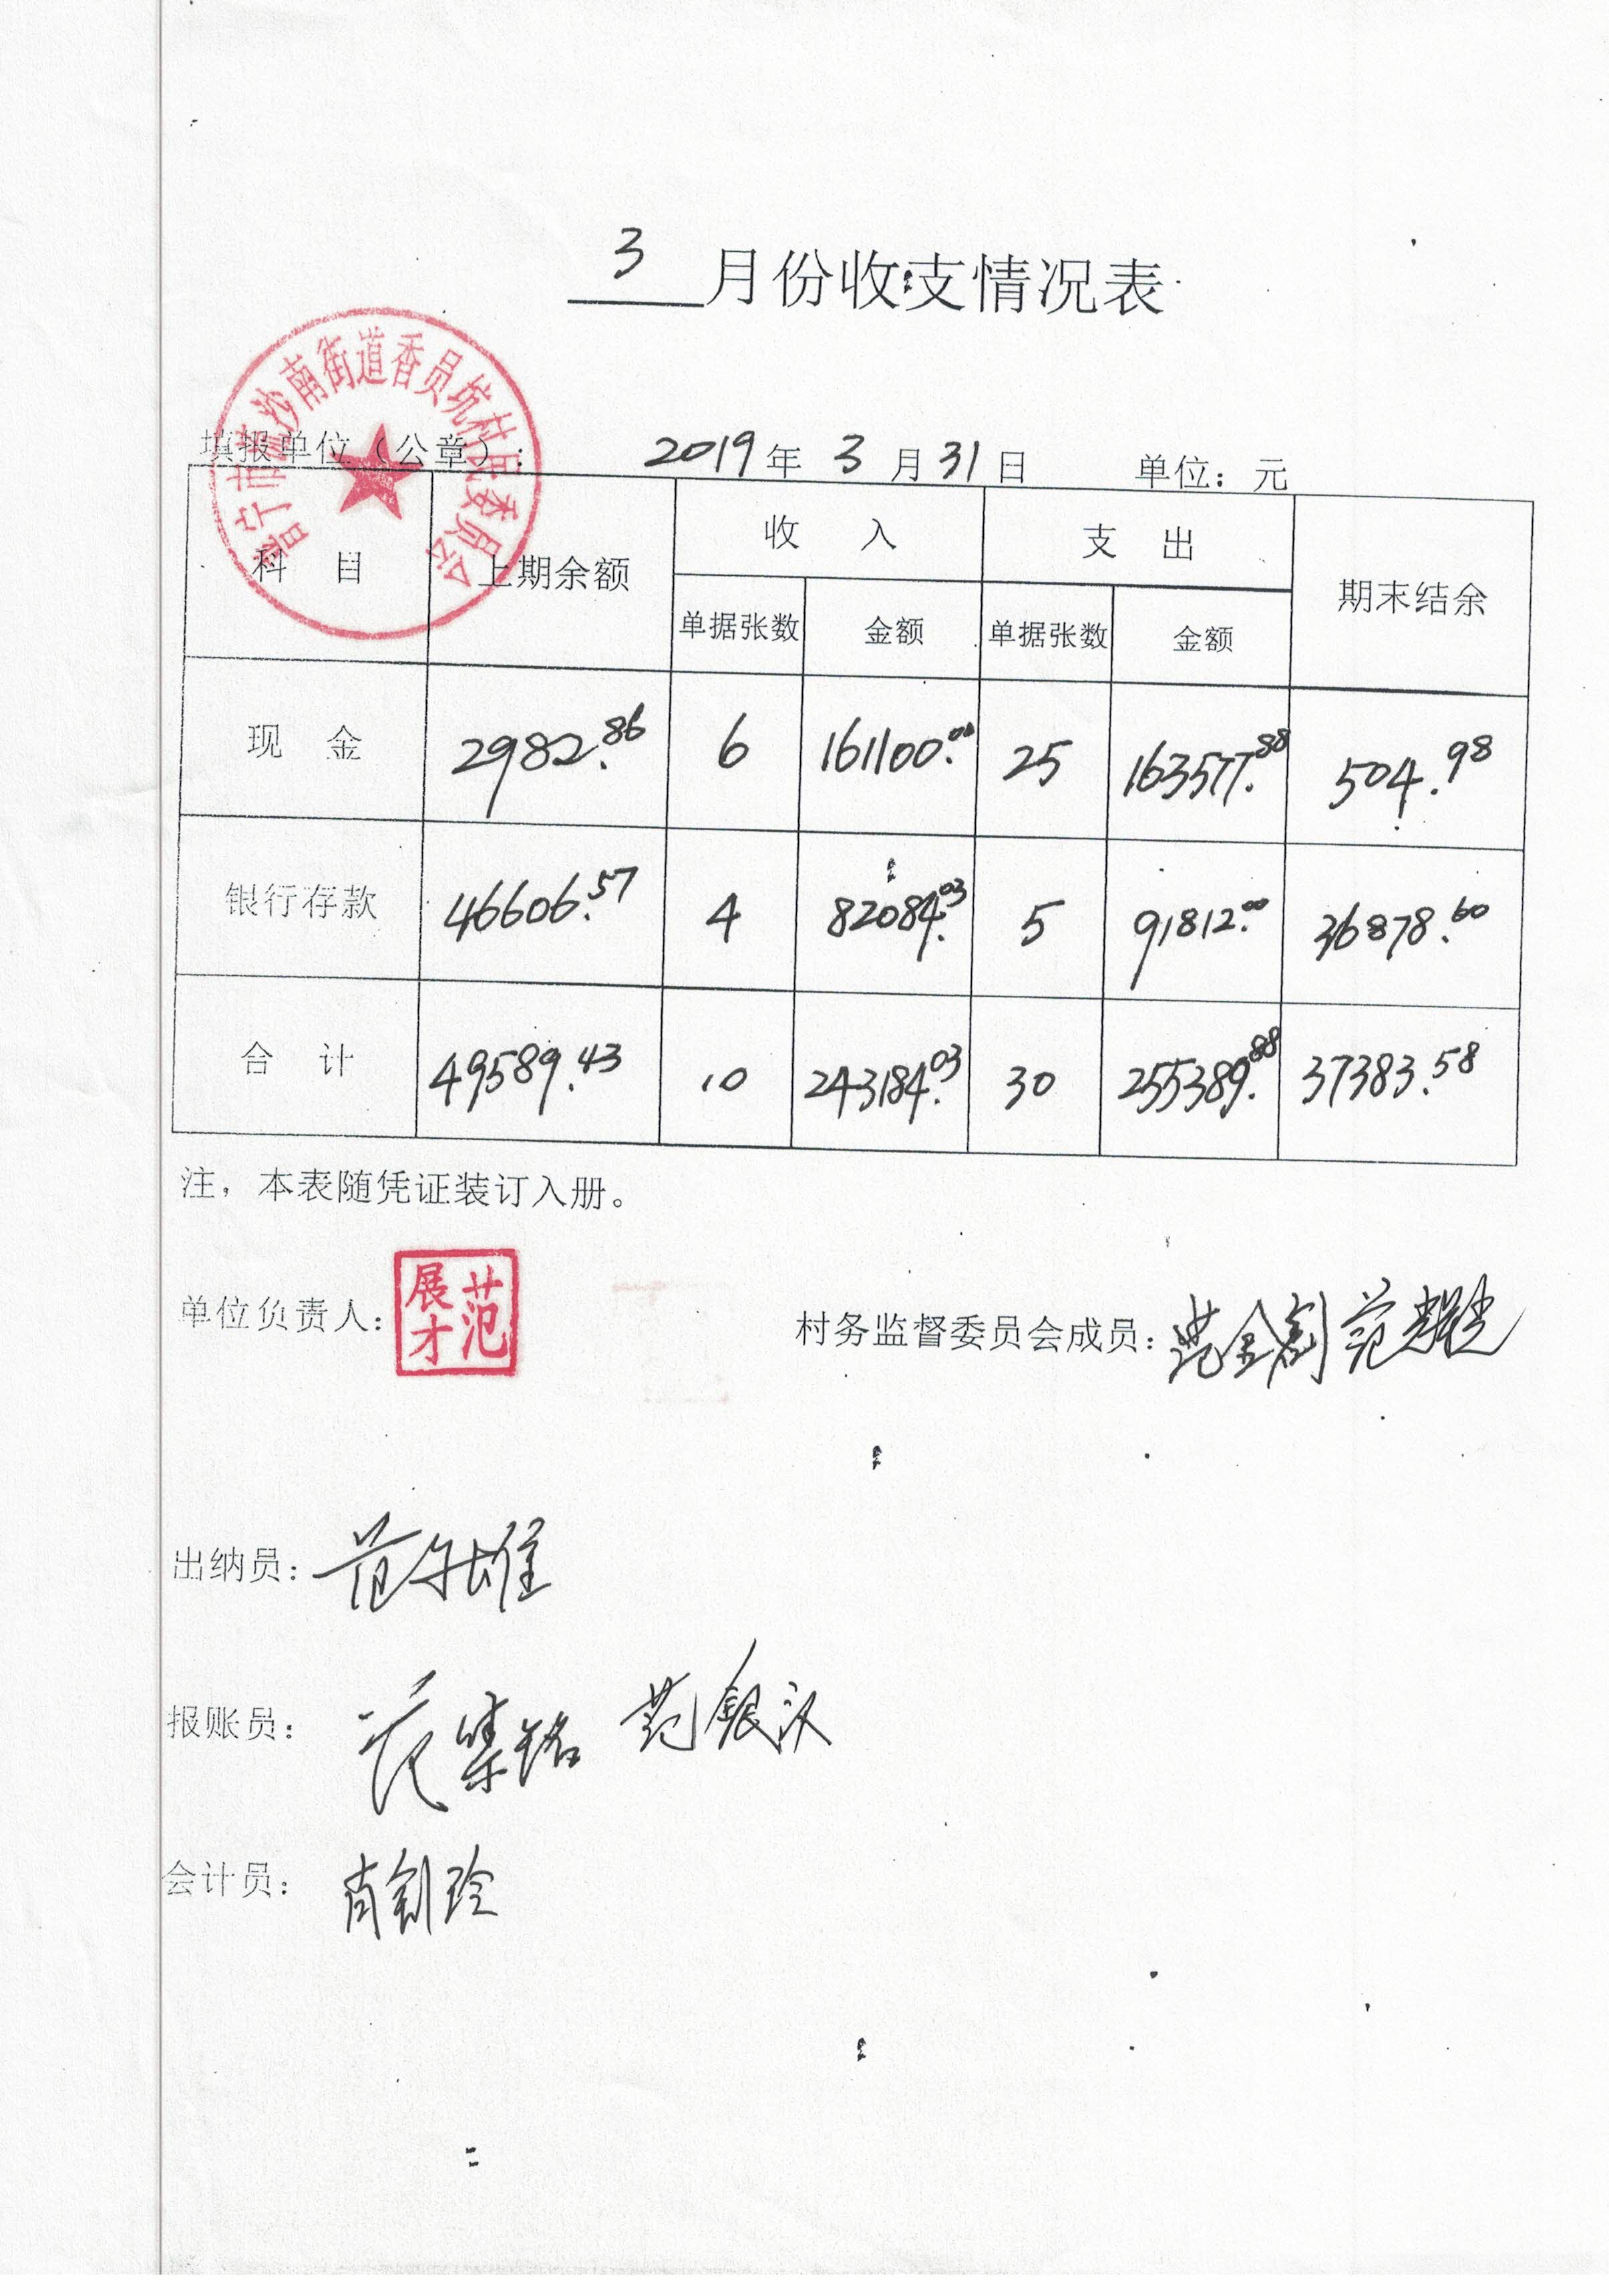 3月份收支情况表
普宁市流沙南街道香员坑村民委员会
填报单位（公章）： 2019年3月31日 单位：元
科 目 上期余额 收 入 支 出 期末结余
单据张数 金额 单据张数 金额
现 金 2982.86 6 161100.00 25 163577.88 504.98
银行存款 46606.57 4 82084.03 5 91812.00 36878.60
合 计 49589.43 10 243184.03 30 255389.88 37383.58
注，本表随凭证装订入册。
单位负责人： 范展才 村务监督委员会成员： 范
出纳员： 范 雄
报账员： 范 铭 范银汉
会计员： 肖 玲